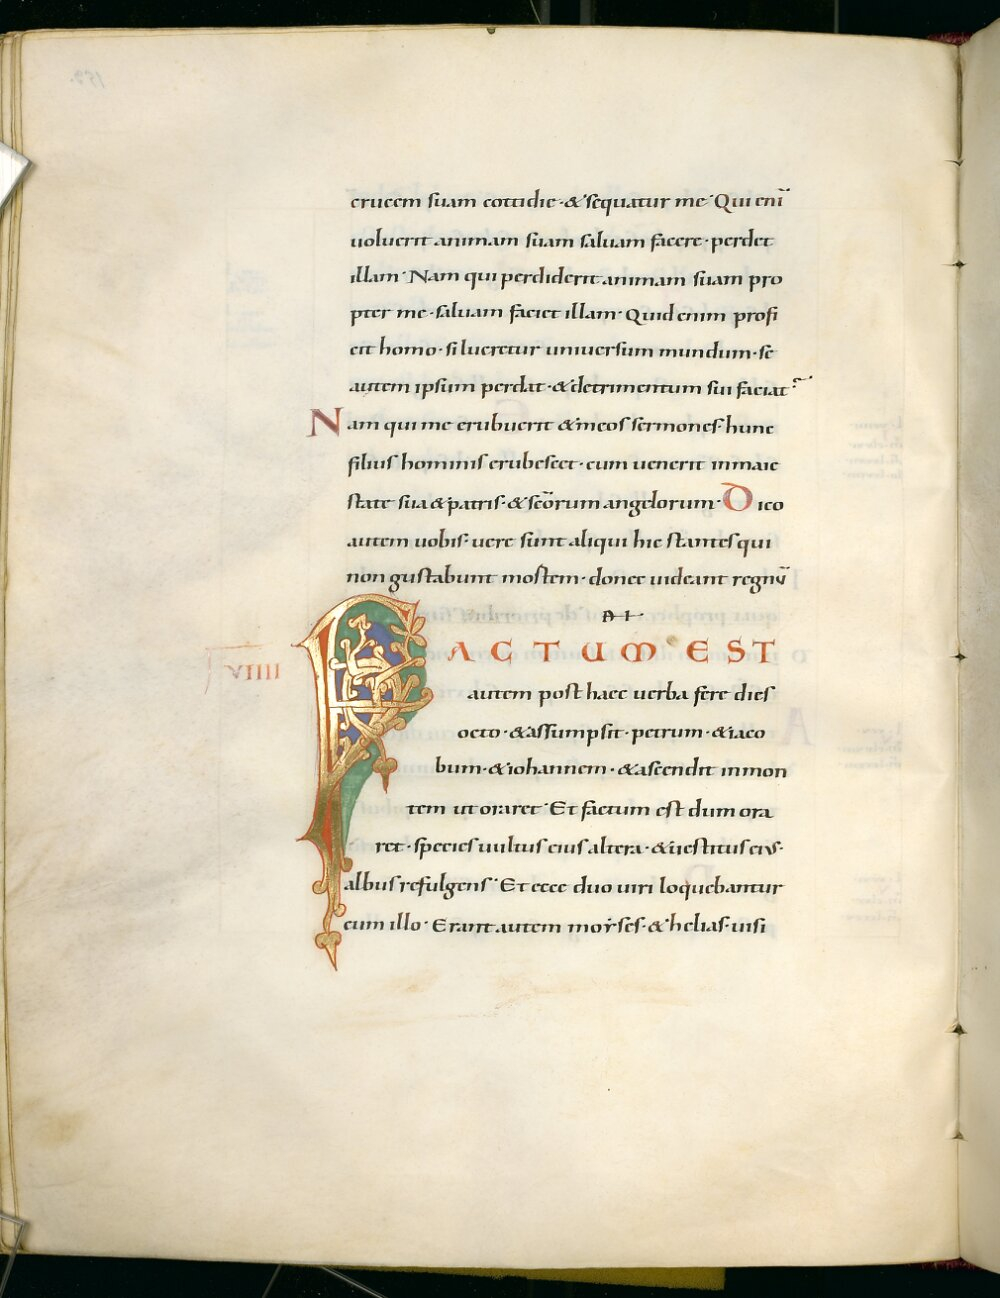 crucem suam cottidie · & sequatur me · Qui enī
uoluerit animam suam saluam facere · perdet
illam · Nam qui perdiderit animam suam pro
pter me · saluam faciet illam · Quid enim profi
cit homo · si lucretur uniuersum mundum · se
autem ipsum perdat · & detrimentum sui faciat
Nam qui me erubuerit & meos sermones hunc
filius hominis erubescet · cum uenerit in maie
state sua & patris · & scōrum angelorum · Dico
autem uobis · uere sunt aliqui hic stantes qui
non gustabunt mostem · donec uideant regnū
DI ·
VIIII FACTUM EST
autem post haec uerba fere dies
octo · & assumpsit · petrum · & iaco
bum · & iohannem · & ascendit in mon
tem ut oraret · Et factum est dum ora
ret · species uultus eius altera · & uestitus eius ·
albus refulgens · Et ecce duo uiri loquebantur
cum illo · Erant autem moyses · & helias · uisi